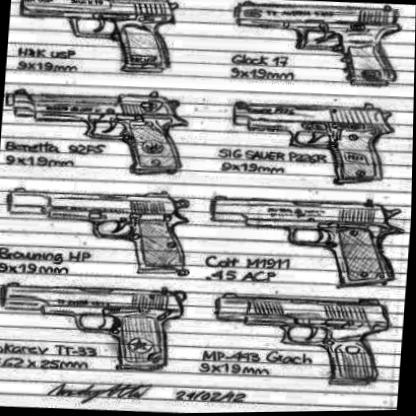 H&K USP
9x19mm
Glock 17
9x19mm
Beretta 92FS
9x19mm
SIG SAUER P226R
9x19mm
Browning HP
9x19mm
Colt M1911
.45 ACP
okarev TT-33
.62x25mm
MP-443 Grach
9x19mm
21/02/12